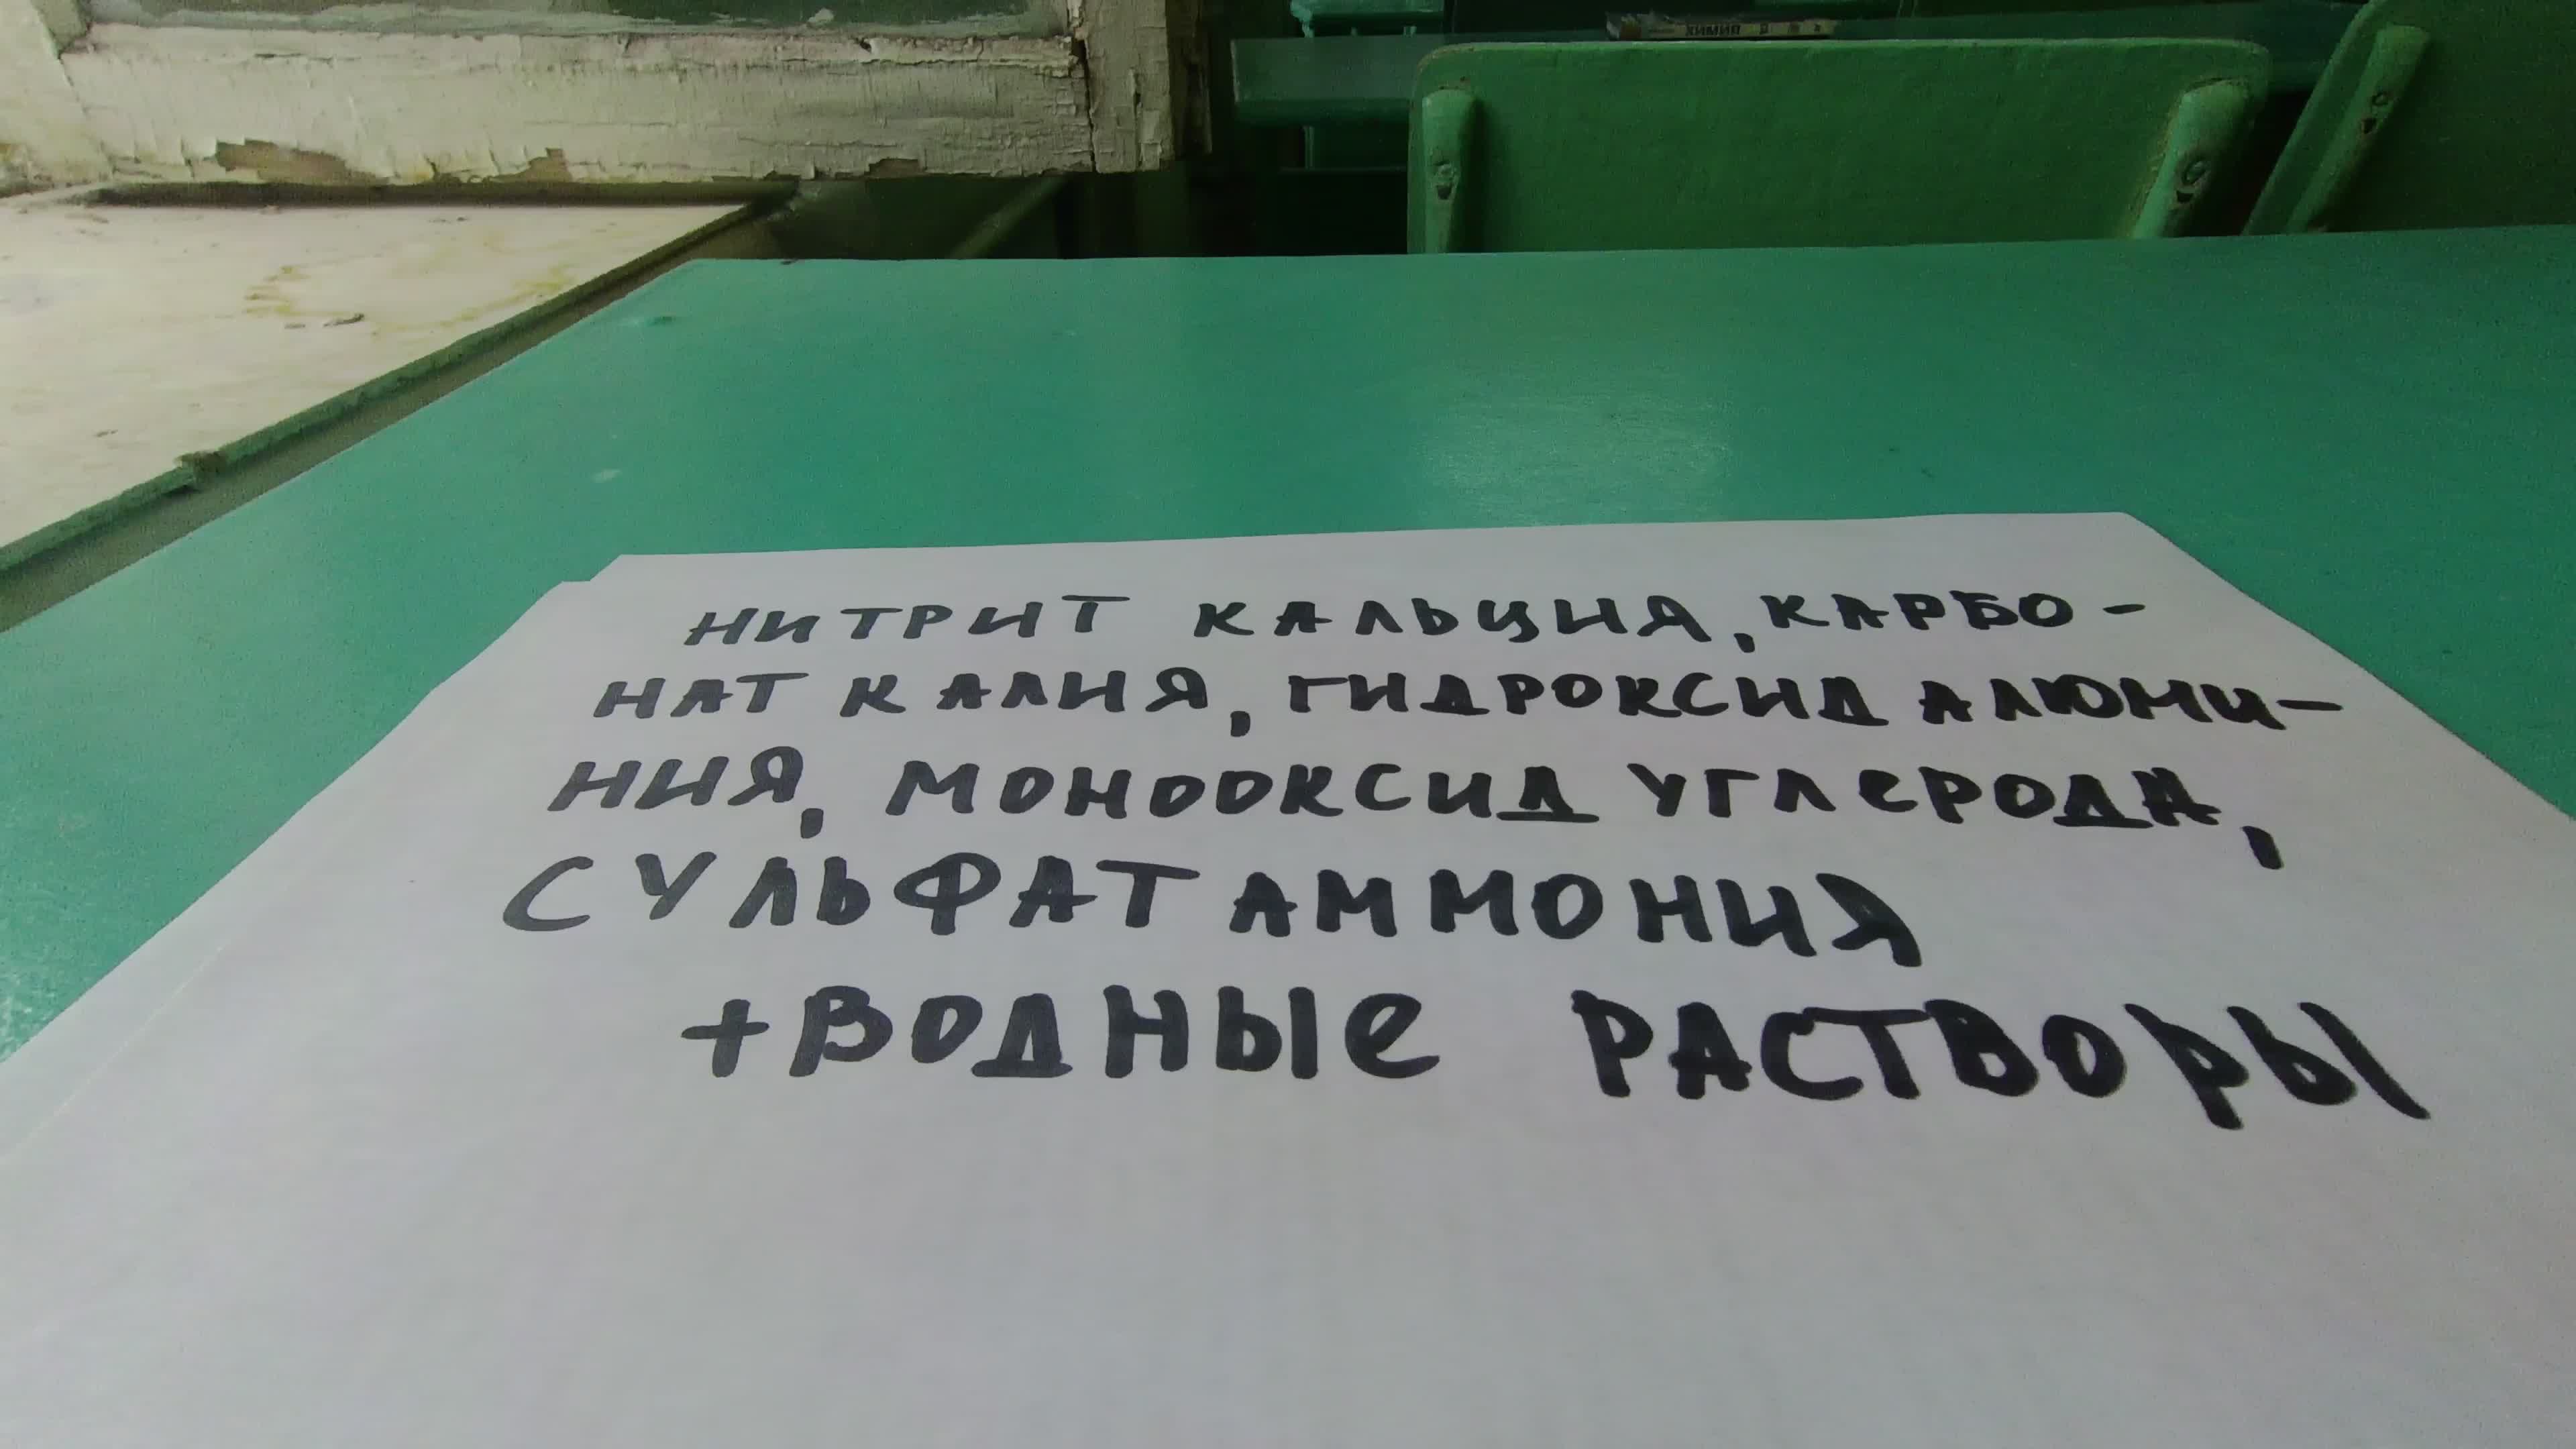 ХИМИЯ
НИТРИТ КАЛЬЦИЯ, КАРБО-
НАТ КАЛИЯ, ГИДРОКСИД АЛЮМИ-
НИЯ, МОНООКСИД УГЛЕРОДА,
СУЛЬФАТ АММОНИЯ
+ ВОДНЫЕ РАСТВОРЫ